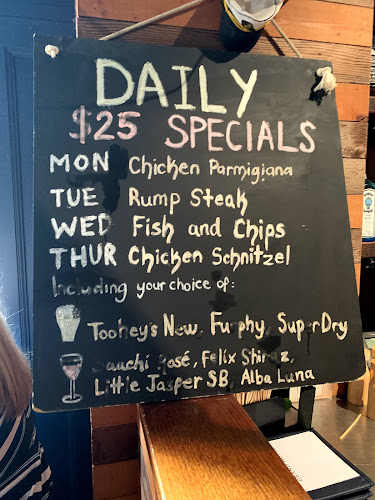 DAILY
$25 SPECIALS
MON Chicken Parmigiana
TUE Rump Steak
WED Fish and Chips
THUR Chicken Schnitzel
Including your choice of:
Toohey's New, Furphy, SuperDry
Rosé, Felix Shiraz,
Little Jasper SB, Alba Luna